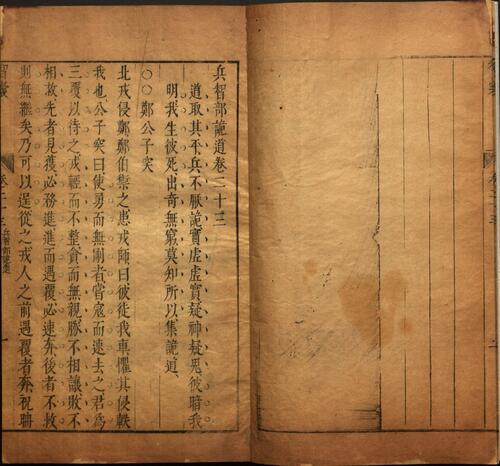 兵智部詭道卷二十三
道取其平兵不厭詭實虛虛實疑神疑鬼彼暗我
明我生彼死出奇無窮莫知所以集詭道
○○鄭公子突
北戎侵鄭鄭伯禦之患戎師曰彼徒我車懼其侵軼
我也公子突曰使勇而無剛者嘗寇而速去之君爲
三覆以待之戎輕而不整貪而無親勝不相讓敗不
相救先者見獲必務進進而遇覆必速奔後者不救
則無繼矣乃可以逞從之戎人之前遇覆者奔祝聃
智囊
卷二十三
兵智部詭道
一